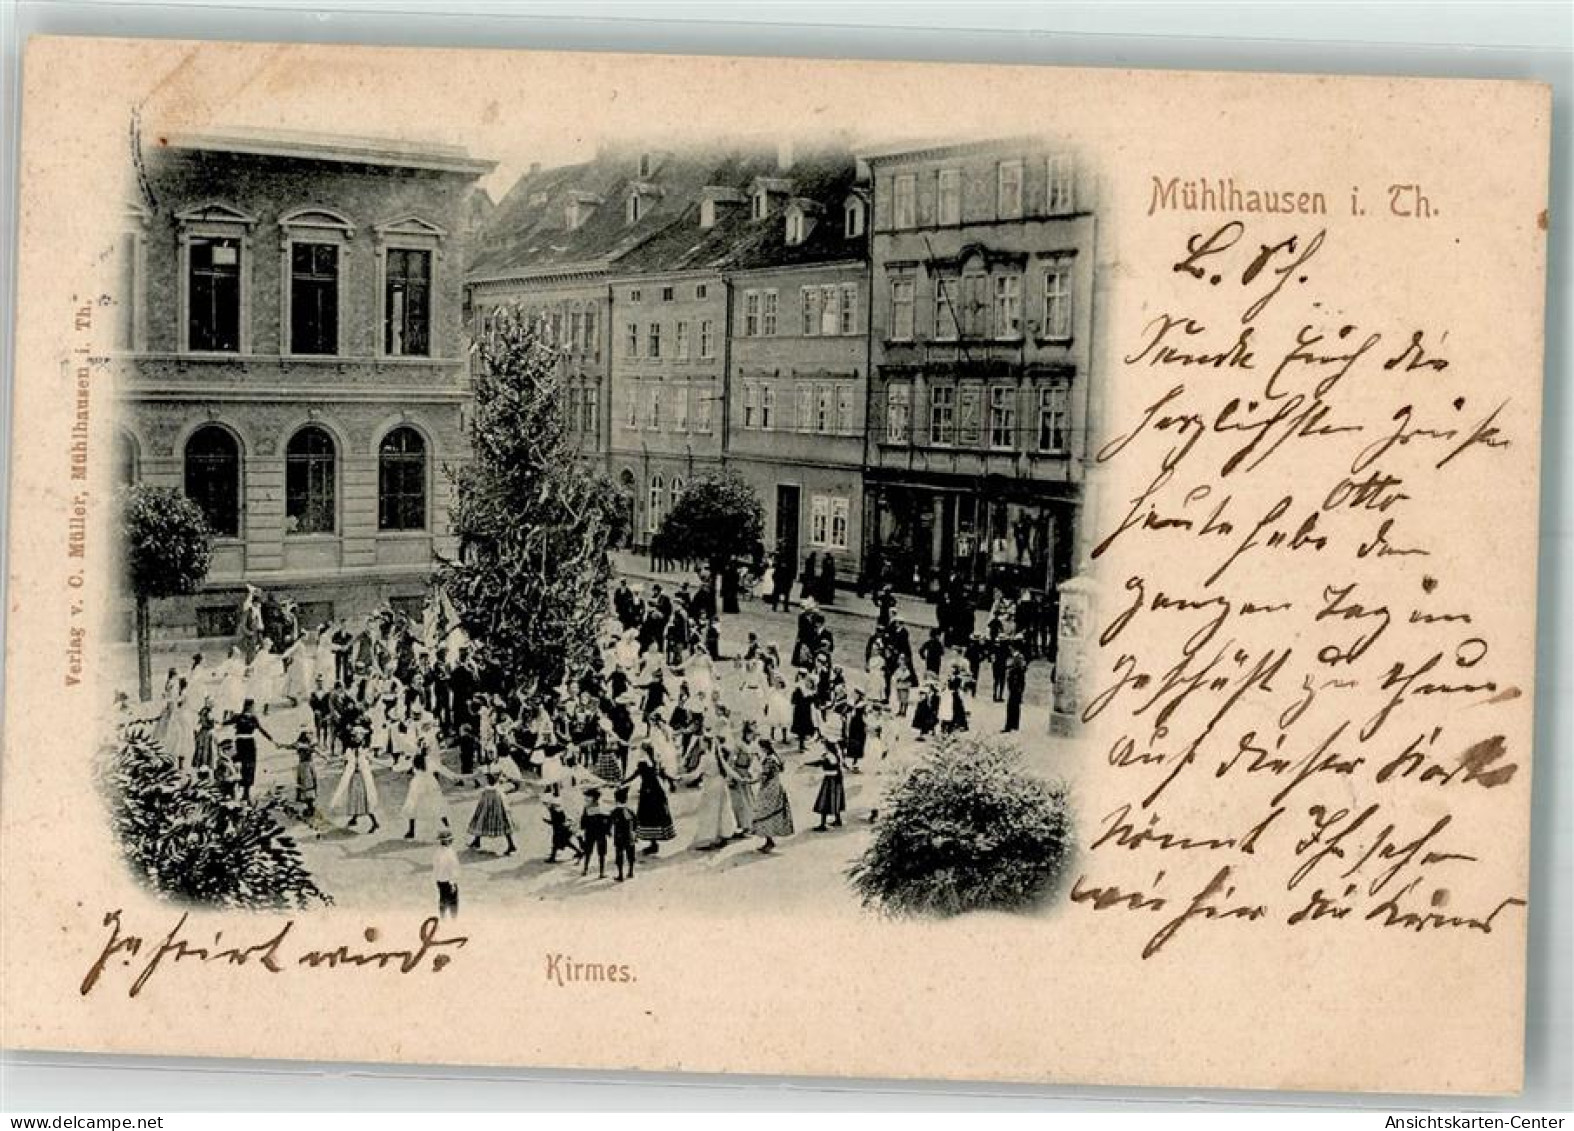 Mühlhausen i. Th.
L. Sch.
Sende Euch die
herzlichsten Grüße
Otto
heute habe den
ganzen Tag im
Geschäft zu thun
auf dieser Karte
könnt Ihr sehen
wie hier die Kirmes
gefeiert wird.
Kirmes.
Verlag v. O. Müller, Mühlhausen i. Th.
oldthing.com
Ansichtskarten-Center